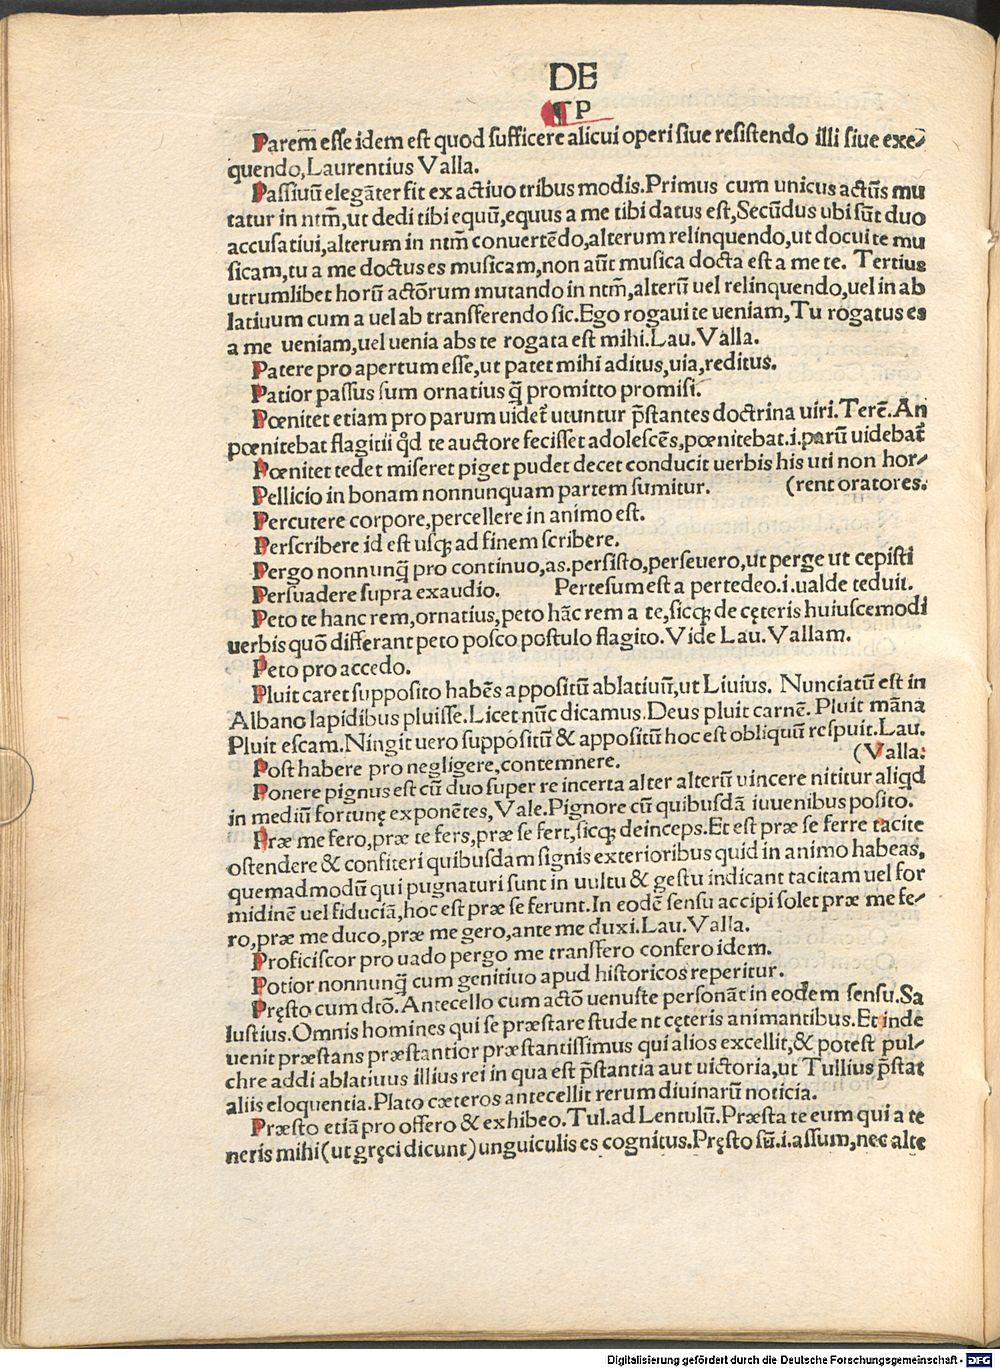 DE
¶ P
Parem̄ esse idem est quod sufficere alicui operi siue resistendo illi siue exe⸗
quendo,Laurentius Valla.
Passiuū elegāter fit ex actiuo tribus modis.Primus cum unicus actūs mu
tatur in ntm̄,ut dedi tibi equū,equus a me tibi datus est,Secūdus ubi sūt duo
accusatiui,alterum in ntm̄ conuertēdo,alterum relinquendo,ut docui te mu
sicam,tu a me doctus es musicam,non aūt musica docta est a me te. Tertius
utrumlibet horū actōrum mutando in ntm̄,alterū uel relinquendo,uel in ab
latiuum cum a uel ab transferendo sic.Ego rogaui te ueniam,Tu rogatus es
a me ueniam,uel uenia abs te rogata est mihi.Lau.Valla.
Patere pro apertum esse,ut patet mihi aditus,uia,reditus.
Patior passus sum ornatius q̄ promitto promisi.
Pœnitet etiam pro parum uidet̄ utuntur p̄stantes doctrina uiri.Terē.An
pœnitebat flagitii qd̄ te auctore fecisset adolescēs,pœnitebat.i.parū uidebat̄
Pœnitet tedet miseret piget pudet decet conducit uerbis his uti non hor⸗
Pellicio in bonam nonnunquam partem sumitur. (rent oratores.
Percutere corpore,percellere in animo est.
Perscribere id est usq; ad finem scribere.
Pergo nonnunq̄ pro continuo,as.persisto,perseuero,ut perge ut cepisti
Persuadere supra exaudio. Pertesum est a pertedeo.i.ualde teduit.
Peto te hanc rem,ornatius,peto hāc rem a te,sicq; de cęteris huiuscemodi
uerbis quō differant peto posco postulo flagito.Vide Lau.Vallam.
Peto pro accedo.
Pluit caret supposito habēs appositū ablatiuū,ut Liuius. Nunciatū est in
Albano lapidibus pluisse.Licet nūc dicamus.Deus pluit carnē. Pluit māna
Pluit escam.Ningit uero suppositū & appositū hoc est obliquū respuit.Lau.
Post habere pro negligere,contemnere. (Valla:
Ponere pignus est cū duo super re incerta alter alterū uincere nititur aliqd
in mediū fortunę exponētes,Vale.Pignore cū quibusdā iuuenibus posito.
Præ me fero,præ te fers,præ se fert,sicq; deinceps.Et est præ se ferre tacite
ostendere & confiteri quibusdam signis exterioribus quid in animo habeas,
quemadmodū qui pugnaturi sunt in uultu & gestu indicant tacitam uel for
midinē uel fiduciā,hoc est præ se ferunt.In eodē sensu accipi solet præ me fe⸗
ro,præ me duco,præ me gero,ante me duxi.Lau.Valla.
Proficiscor pro uado pergo me transfero confero idem.
Potior nonnunq̄ cum genitiuo apud historicos reperitur.
Pręsto cum dtō.Antecello cum actō uenuste personāt in eodem sensu.Sa
lustius.Omnis homines qui se præstare student cęteris animantibus.Et inde
uenit præstans præstantior præstantissimus qui alios excellit,& potest pul⸗
chre addi ablatiuus illius rei in qua est p̄stantia aut uictoria,ut Tullius p̄stat
aliis eloquentia.Plato cæteros antecellit rerum diuinarū noticia.
Præsto etiā pro offero & exhibeo.Tul.ad Lentulū.Præsta te eum qui a te
neris mihi(ut gręci dicunt)unguiculis es cognitus.Pręsto sū.i.assum,nec alte
Digitalisierung gefördert durch die Deutsche Forschungsgemeinschaft - DFG